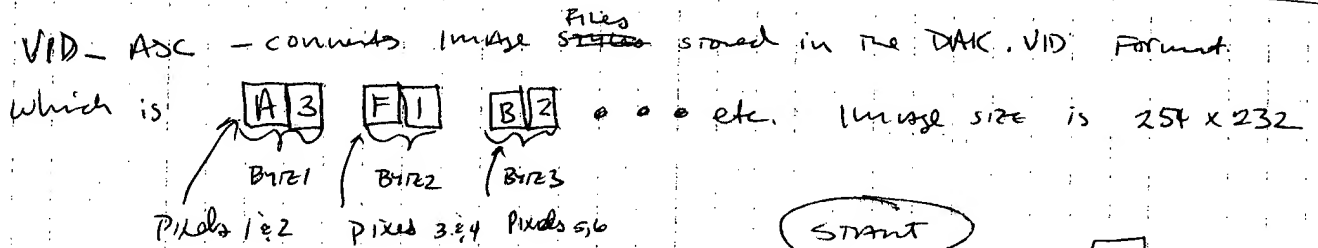 VID_ASC - converts Image Files stored in the DAK .VID Format
which is A 3 F 1 B 2 • • • etc. Image size is 254 x 232
BYTE1 BYTE2 BYTE3
Pixels 1 & 2 Pixes 3 & 4 Pixels 5,6
START